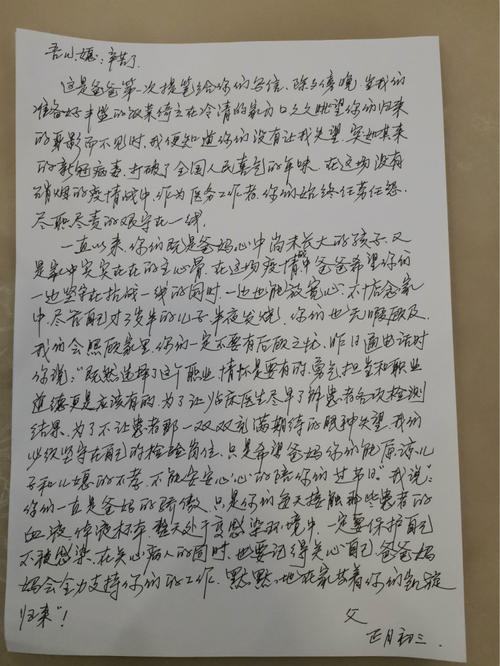 吾儿、媳：辛苦了
这是爸爸第一次提笔给你们写信，除夕傍晚，当我们
准备好丰盛的饭菜倚立在冷清的家门口久久眺望你们归来
的身影而不见时，我便知道你们没有让我失望，突如其来
的新冠病毒，打破了全国人民喜气的年味，在这场没有
硝烟的疫情战中，作为医务工作者，你们始终任劳任怨，
尽职尽责的坚守在一线。
一直以来，你们既是爸妈心中尚未长大的孩子，又
是家中实实在在的主心骨，在这场疫情中爸爸希望你们
一边坚守在抗战一线的同时，一边也能放宽心，不惦念家
中，尽管自己对3岁半的儿子半夜发烧，你们也无暇顾及，
我们会照顾家里，你们一定不要有后顾之忧，昨日通电话时
你说："既然选择了这个职业，情怀是要有的，勇气、担当和职业
道德更是应该有的，为了让临床医生尽早了解患者各项检测
结果，为了不让患者那一双双充满期待的眼神失望，我们
必须坚守在自己的检验岗位，只是希望爸妈你们能原谅儿
子和儿媳的不孝，不能安安心心的陪你们过节日"我说："
你们一直是爸妈的骄傲，只是你们每天接触那些患者的
血液、体液标本，整天处于易感染环境中，一定要保护自己
不被感染，在关心病人的同时，也要记得关心自己，爸爸妈
妈会全力支持你们的工作，默默地在家等着你们的凯旋
归来"！
父
正月初三